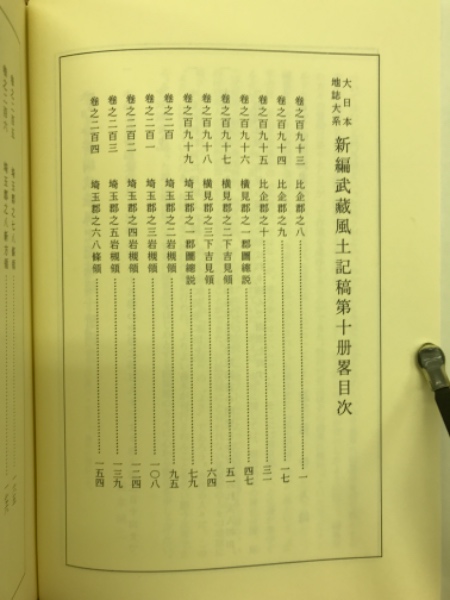 大日本
地誌大系
新編武藏風土記稿第十册畧目次
卷之百九十三 比企郡之八 一
卷之百九十四 比企郡之九 一七
卷之百九十五 比企郡之十 三一
卷之百九十六 橫見郡之一郡圖總說 四七
卷之百九十七 橫見郡之二下吉見領 五一
卷之百九十八 橫見郡之三下吉見領 六四
卷之百九十九 埼玉郡之一郡圖總說 七九
卷之二百 埼玉郡之二岩槻領 九五
卷之二百一 埼玉郡之三岩槻領 一〇八
卷之二百二 埼玉郡之四岩槻領 一二四
卷之二百三 埼玉郡之五岩槻領 一三九
卷之二百四 埼玉郡之六八條領 一五四